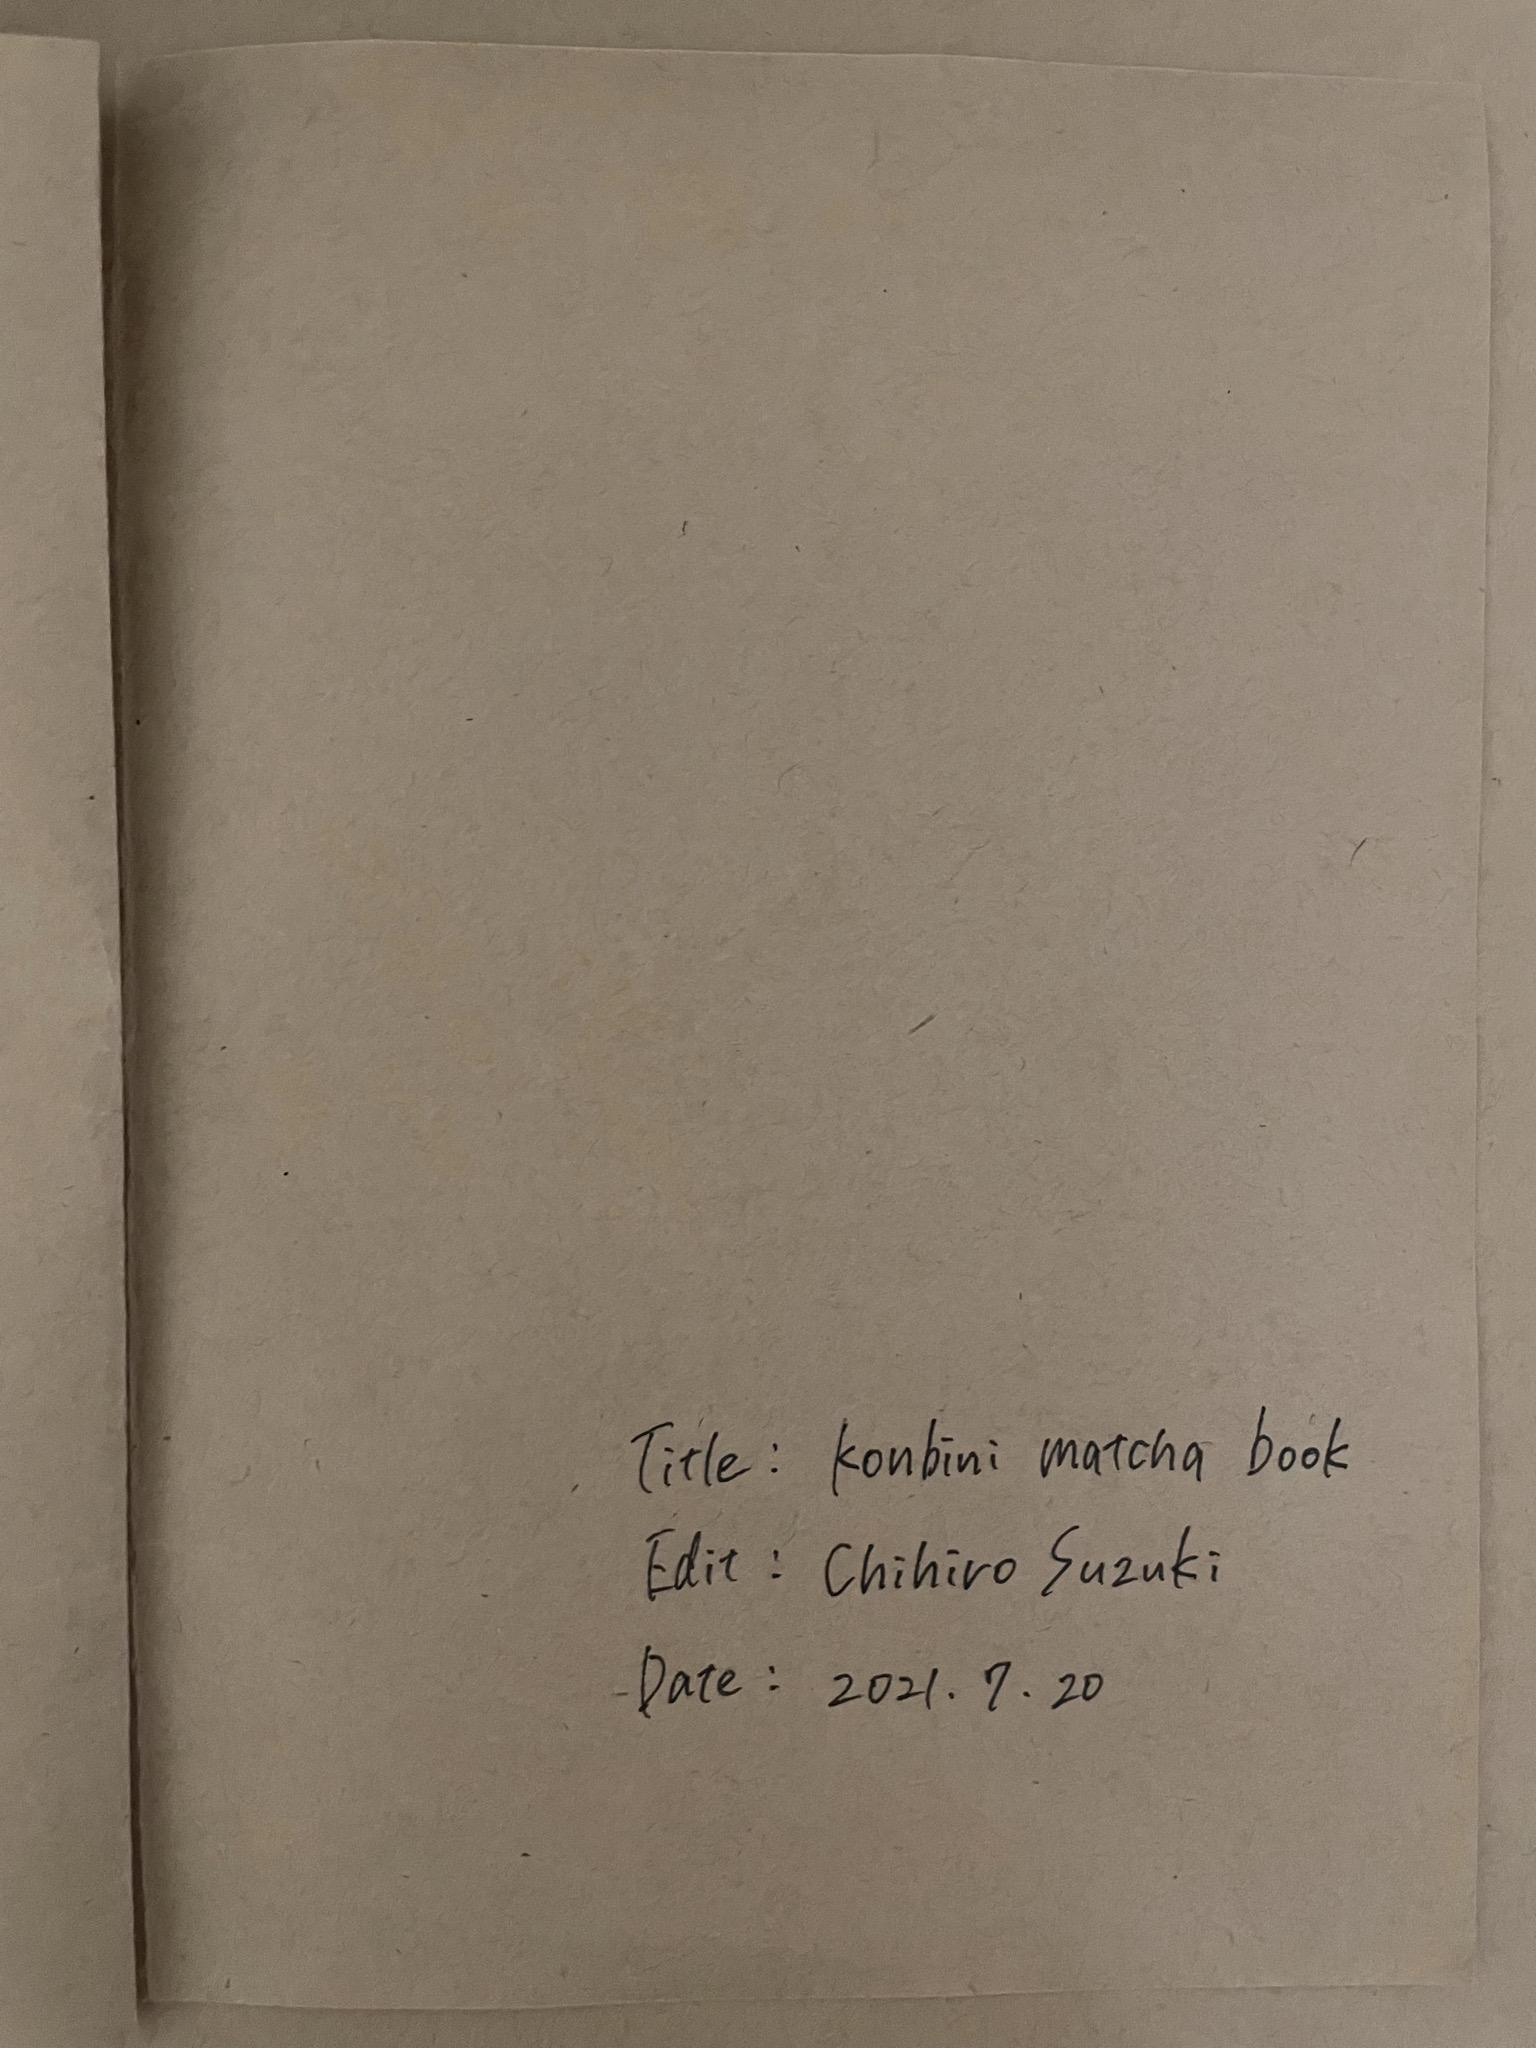 Title: konbini matcha book
Edit: Chihiro Suzuki
Date: 2021. 7. 20